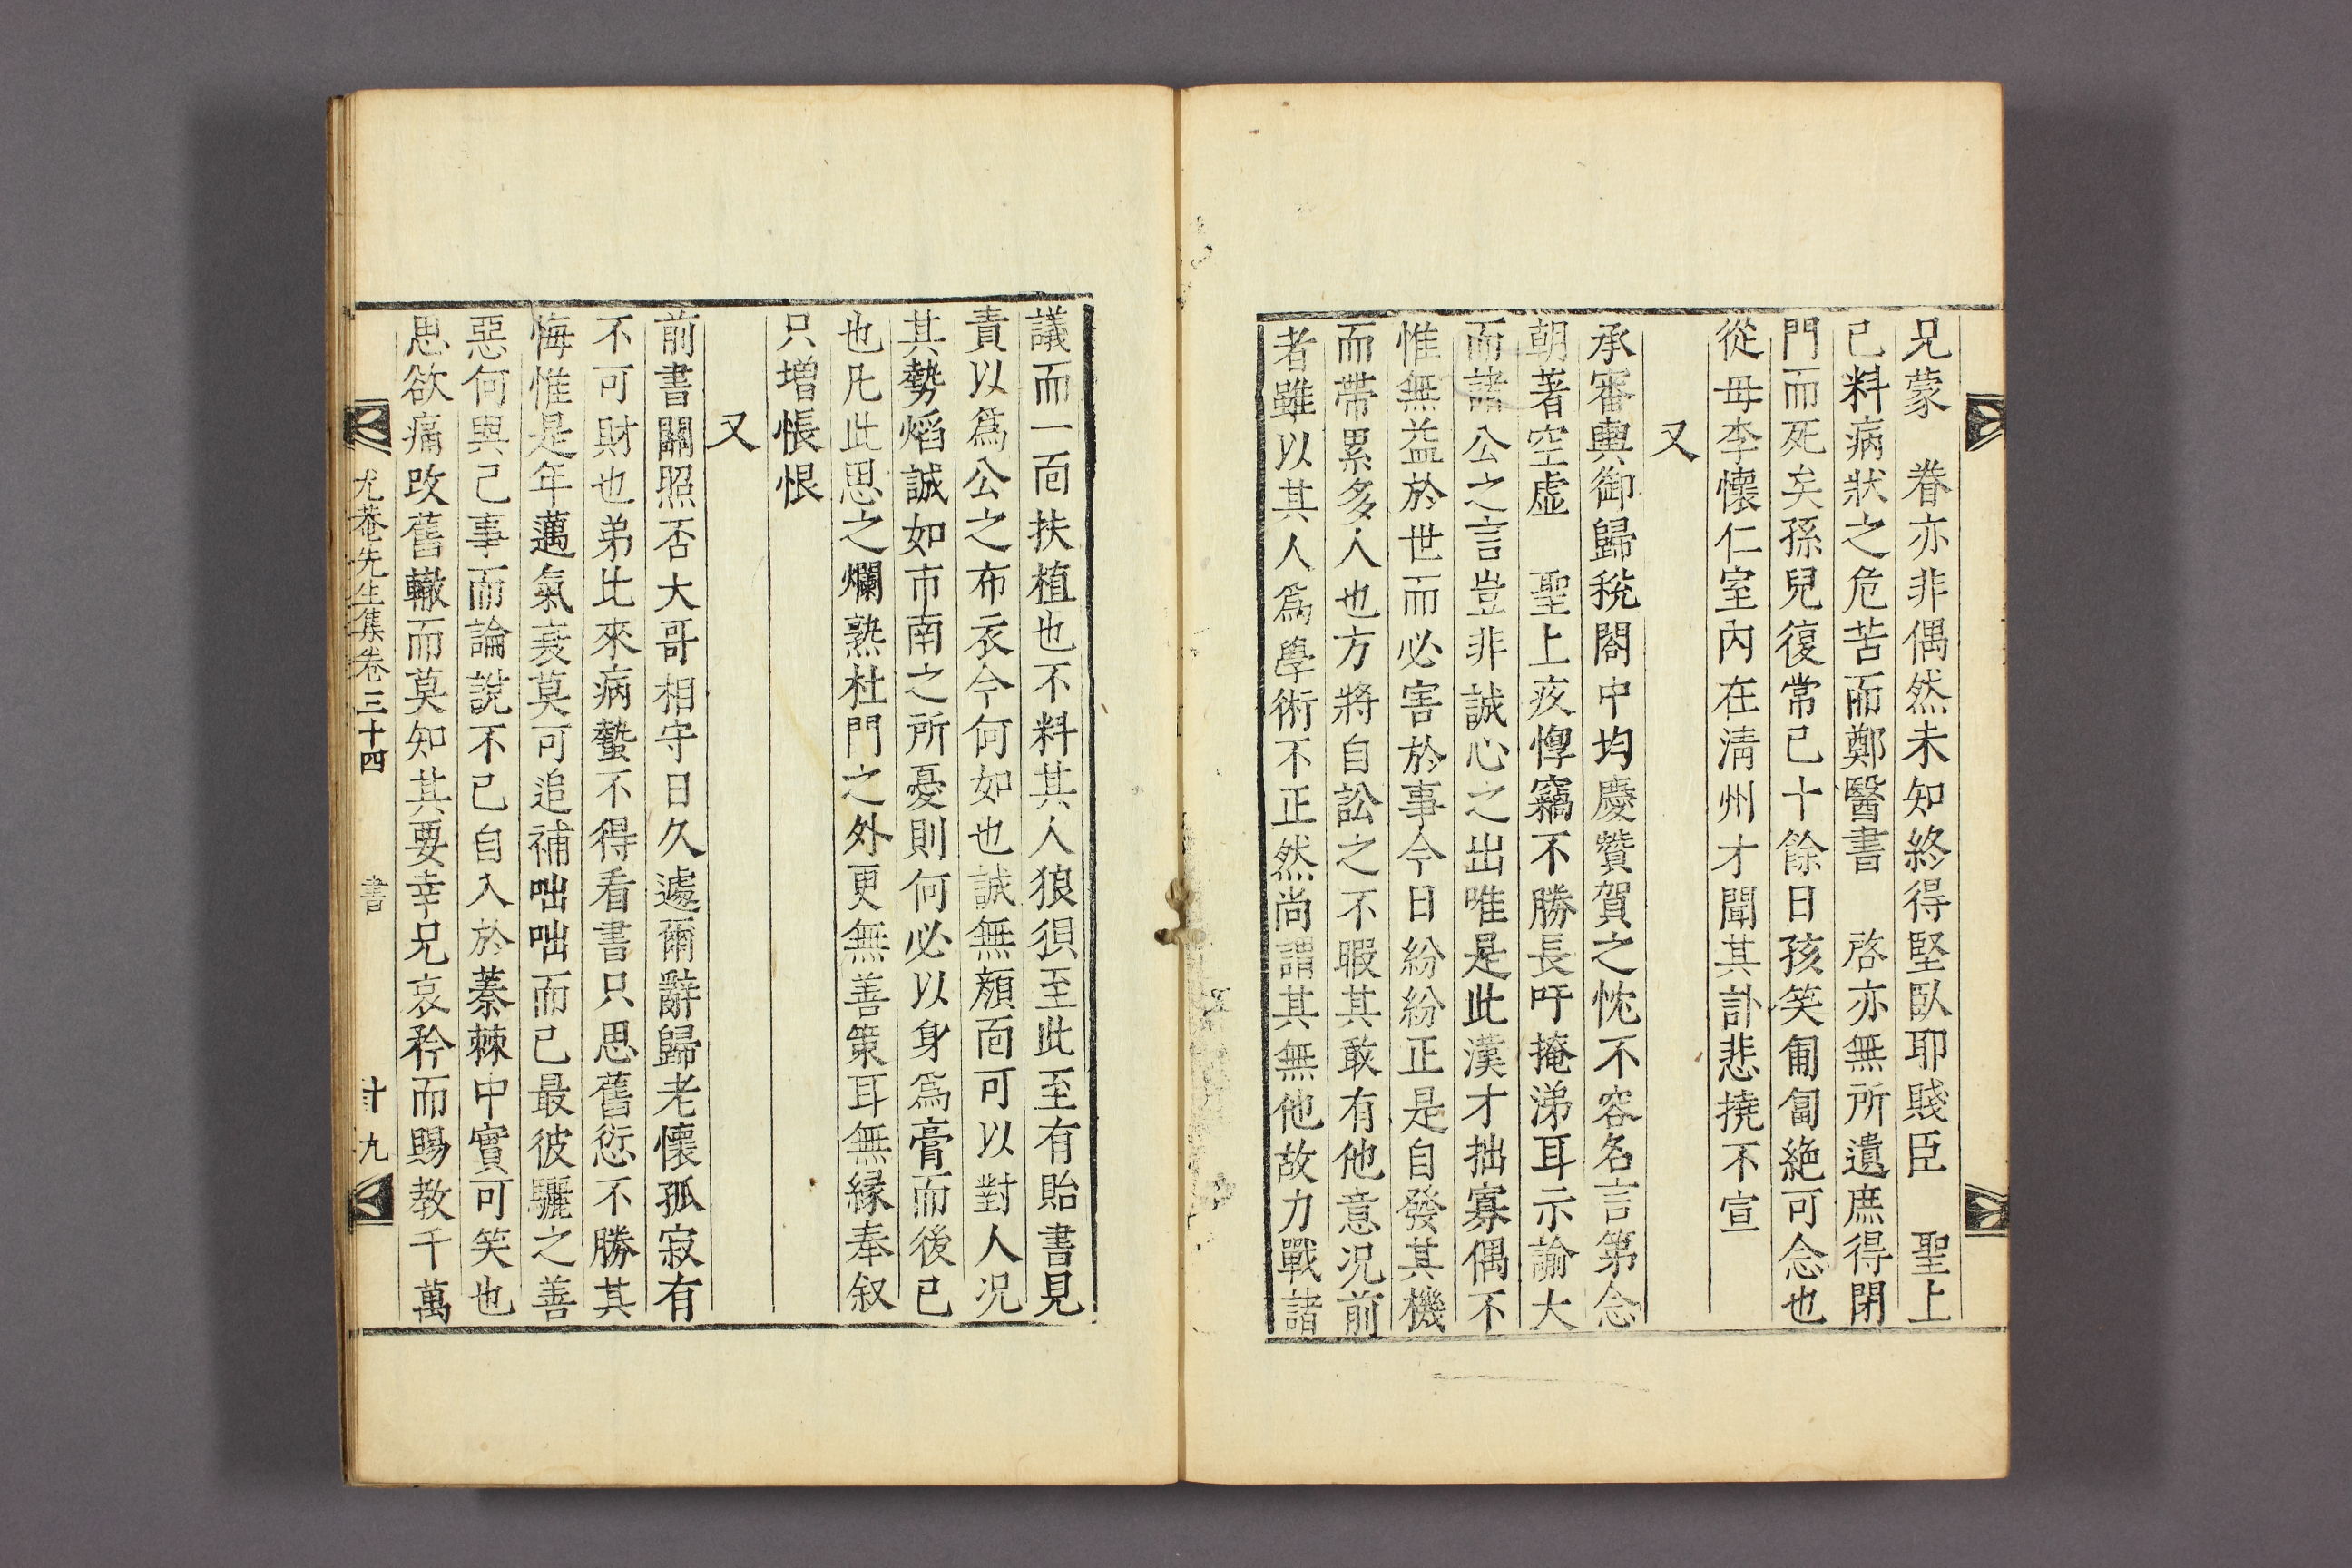 兄蒙　眷亦非偶然未知終得堅臥耶賤臣　聖上
已料病狀之危苦而鄭醫書　啓亦無所遺庶得閉
門而死矣孫兒復常已十餘日孩笑匍匐絶可念也
從母李懷仁室內在淸州才聞其訃悲撓不宣
又
承審輿御歸稅閤中均慶贊賀之忱不容名言第念
朝著空虛　聖上疚惸竊不勝長吁掩涕耳示諭大
而諸公之言豈非誠心之出唯是此漢才拙寡偶不
惟無益於世而必害於事今日紛紛正是自發其機
而帶累多人也方將自訟之不暇其敢有他意况前
者雖以其人爲學術不正然尚謂其無他故力戰諸
議而一面扶植也不料其人狼狽至此至有貽書見
責以爲公之布衣今何如也誠無顔面可以對人况
其勢熖誠如市南之所憂則何必以身爲膏而後已
也凡此思之爛熟杜門之外更無善策耳無緣奉叙
只增悵恨
又
前書關照否大哥相守日久遽爾辭歸老懷孤寂有
不可財也弟比來病蟄不得看書只思舊愆不勝其
悔惟是年邁氣衰莫可追補咄咄而已最彼驪之善
惡何與己事而論說不已自入於蓁棘中實可笑也
思欲痛改舊轍而莫知其要幸兄哀矜而賜教千萬
尤菴先生集卷三十四　書　廿九